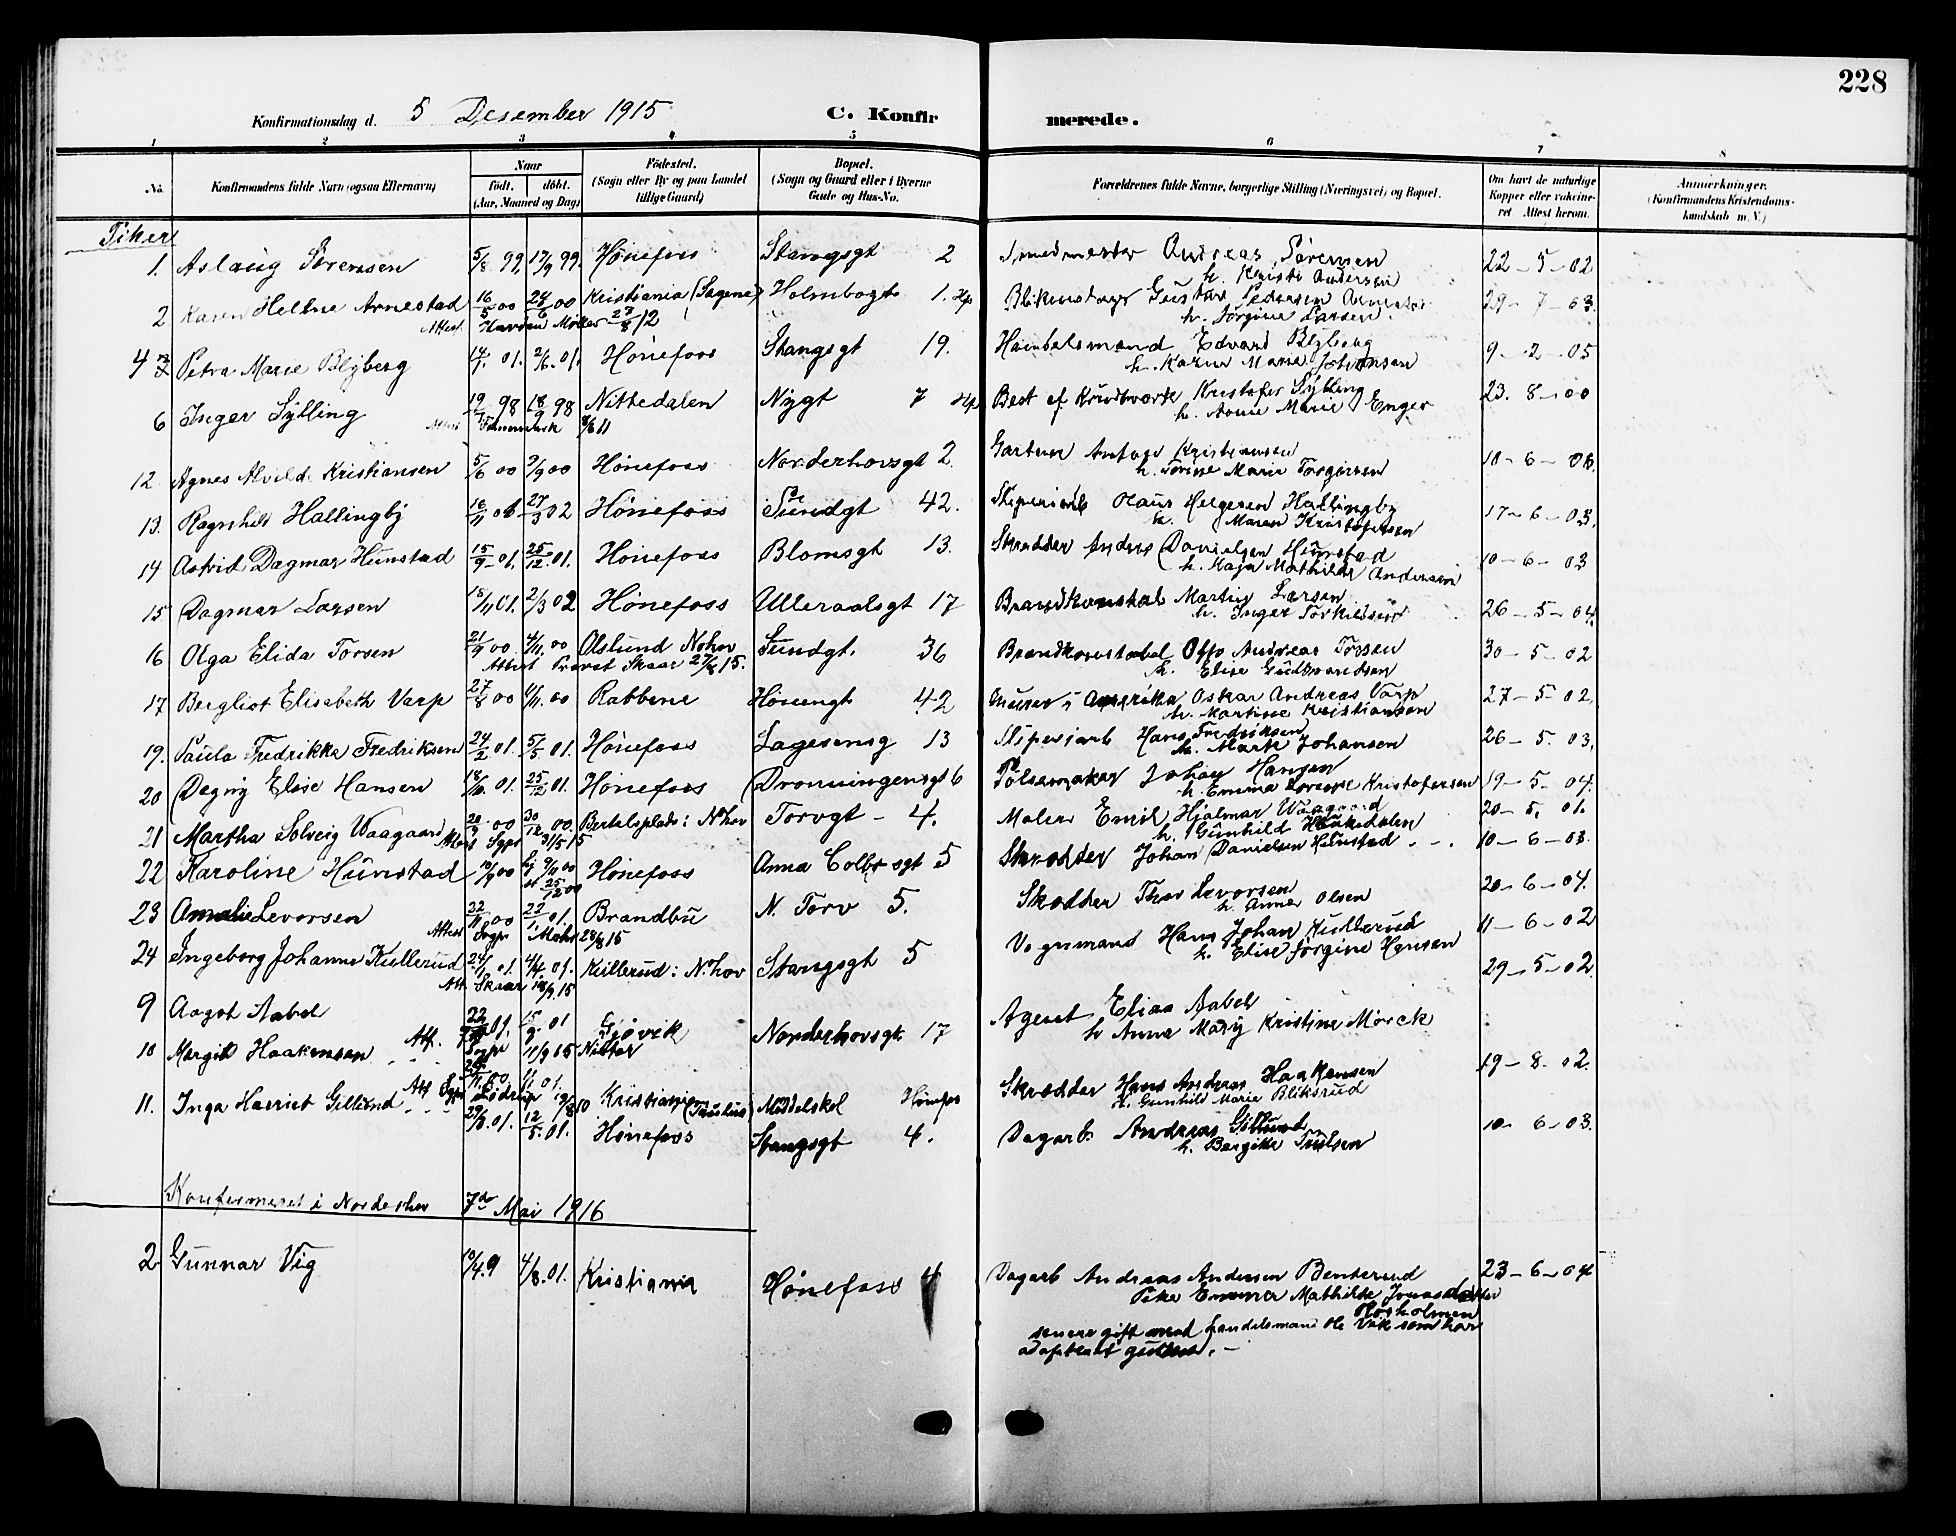 228
Konfirmationsdag d. 5 Desember 1915 C. Konfirmerede.
1 2 3 4 5 6 7 8
No. Konfirmandens fulde Navn (ogsaa Efternavn) Naar født. døbt. (Aar, Maaned og Dag) Födested. (Sogn eller By og paa Landet tillige Gaard) Bopæl. (Sogn og Gaard eller i Byerne Gade og Hus-No. Forældrenes fulde Navne, borgerlige Stilling (Næringsvei) og Bopæl. Om havt de naturlige Kopper eller vakcineret Attest herom. Anmerkninger. (Konfirmandens Kristendomskundskab m. V.)
Piker
1. Aslaug Sørensen 5/8 99, 17/9 99. Hønefoss Stangsgt 2 Smedmester Andreas Sørensen 22-5-02
h. Kristi Andersen
2 Karen Helene Arnestad 16/5 00 24/6 00 Kristiania (Sagene) Holmbogt 1. Blikenslager Gustav Pedersen Arnestad 29-7-03.
Attest Møller 27/8 12 h. Jørgine Larsen.
4 Petra Marie Blyberg 14/1. 01. 2/6. 01. Hønefoss Stangsgt 19. Handelsmand Edvard Blyberg 9-2-05
h. Karen Marie Johansen
6 Inger Sylling 19/7 98 18/9 98 Nittedalen Nygt 7 Best. af Krudtværk Kristofer Sylling 23. 8-00
Attest 8/6 11 h. Anne Marie Enger
12 Agnes Alvilde Kristiansen 5/6 00 9/9 00 Hønefoss Norderhovsgt 2. Gartner Anton Kristiansen 10-6-03.
h. Torine Marie Torgersen
13. Ragnhild Hallingby 18/11 01 27/3 02 Hønefoss Sundgt 42. Sliperiarb Olaus Helgesen Hallingby 17-6-03.
h. Maren Kristofersen
14 Astrid Dagmar Hunstad 15/9 01. 25/12. 01. Hønefoss Blomsgt 13. Skrædder Anders Danielsen Hunstad 10-6-03
h. Kaja Mathilde Andersen
15 Dagmar Larsen 18/11 01. 2/3 02 Hønefoss Ulleraalsgt 17 Brandkonstab Martin Larsen 26-5-04.
h. Inger Torkildsen
16 Olga Elida Torsen 21/9 00. 4/11. 00 Aslund N.hov Sundgt. 36 Brandkonstabel Otto Andreas Torsen 30-5-02
Attest Provst Skaar 27/8 15. h. Elise Gudbrandsen
17 Bergliot Elisabeth Varp 27/8 00 4/11. 00 Rabbene Hønengt 42 Murer i Amerika Oskar Andreas Varp 27-5-02
h. Martine Kristiansen
19. Paula Fredrikke Fredriksen 24/2. 01. 5/5 01. Hønefoss Lagesensg 13 Sliperiarb Hans Fredriksen 26-5. 03.
h. Marte Johansen
20 Dagny Elise Hansen 18/10. 01. 25/12 01. Hønefoss Dronningensgt 6 Pølsemaker Johan Hansen 19-5-04.
h. Emma Lovise Kristofersen
21 Martha Solveig Waagaard 20/9 00 30/12 00. Bertelsplads i N.hov Torvgt - 4. Maler Emil Hjalmar Waagaard 20-5. 01.
Attest Sgpr 31/5 15 h. Gunhild Haakedalen
22 Karoline Hunstad 10/9 00 hj 9/11 00 Hønefoss Anna Colbs gt 5 Skrædder Johan Danielsen Hunstad - - . 10-6-03.
st 25/12 00
23 Amalie Levorsen 22/11 00 22/1. 01. Brandbu N. Torv 5. Skrædder Thor Levorsen 20-6-04.
Attest Sogpr Moht 28/8 15 h. Anne Olsen
24 Ingeborg Johanne Kullerud 24/1 01. 4/4. 01. Kullerud i N.hov Stangsgt 5 Vognmand Hans Johan Kullerud 11-6-02
Att. Skaar 18/9. 15 h. Elise Jørgine Hansen
29-5-02
9 Aagot Aabel 22/7 01, 15/9. 01 Gjøvik Norderhovsgt 17 Agent Elias Aabel
Att. Sogpr 11/9 15 h Anna Mary Kristine Mørck
10 Margit Haakensen 11/11 01. Kristiania (Paulus) Middelskol Hønefos Skrædder Hans Andreas Haakensen 19-8. 02.
Att Sgpr 19/8 10 h. Gunhild Marie Bliksrud
11. Inga Harriet Gillund 27/3. 01. 12/5. 01. Hønefoss Stangsgt 4. Dagarb Andreas Gillund 10- 6-03.
h. Bergitte Paulsen
Konfirmeret i Norderhov 7de Mai 1916
2 Gunnar Vig 10/4. 9 4/8. 01. Kristiania Hønefoss 4 Dagarb Andreas Andersen Benterud 23-6-04
Pike Emma Mathilde Jonasdatter
Røsholmen
senere gift med Landelsmand Ole Vik som har
adopteret gutten. -